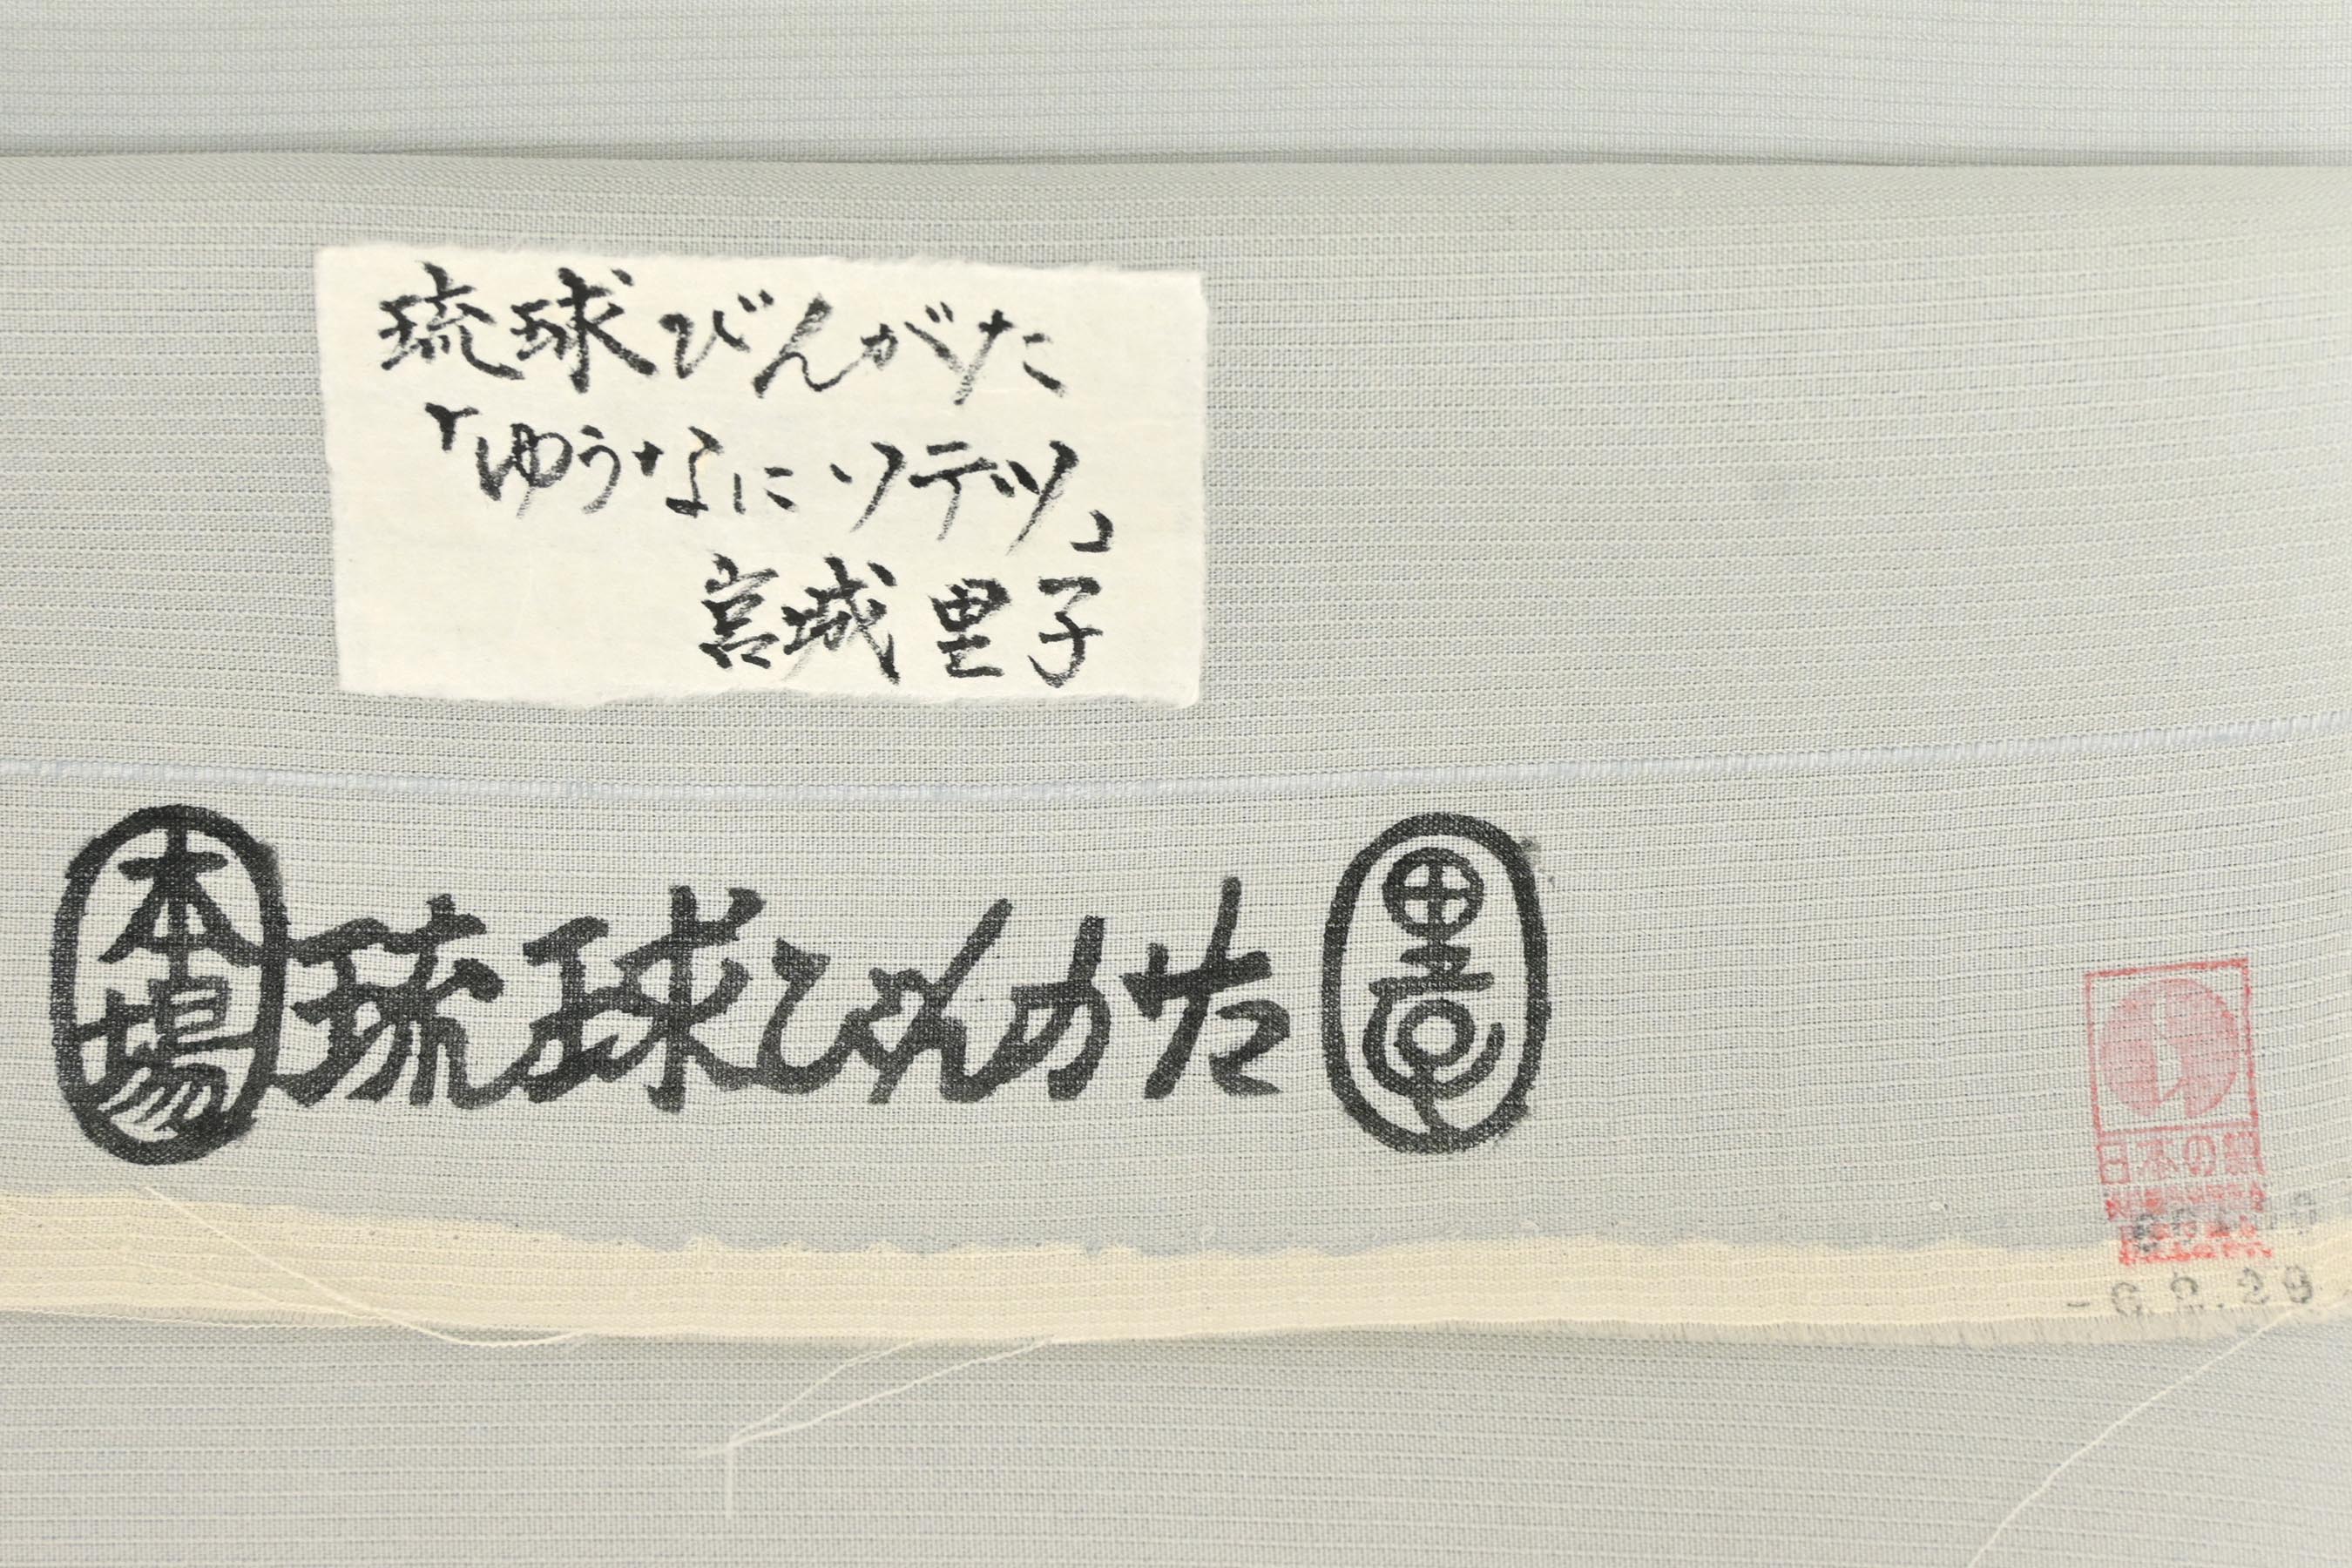 琉球びんがた
「ゆうなにソテツ」
宮城里子
本場
琉球びんがた
里子
日本の絹